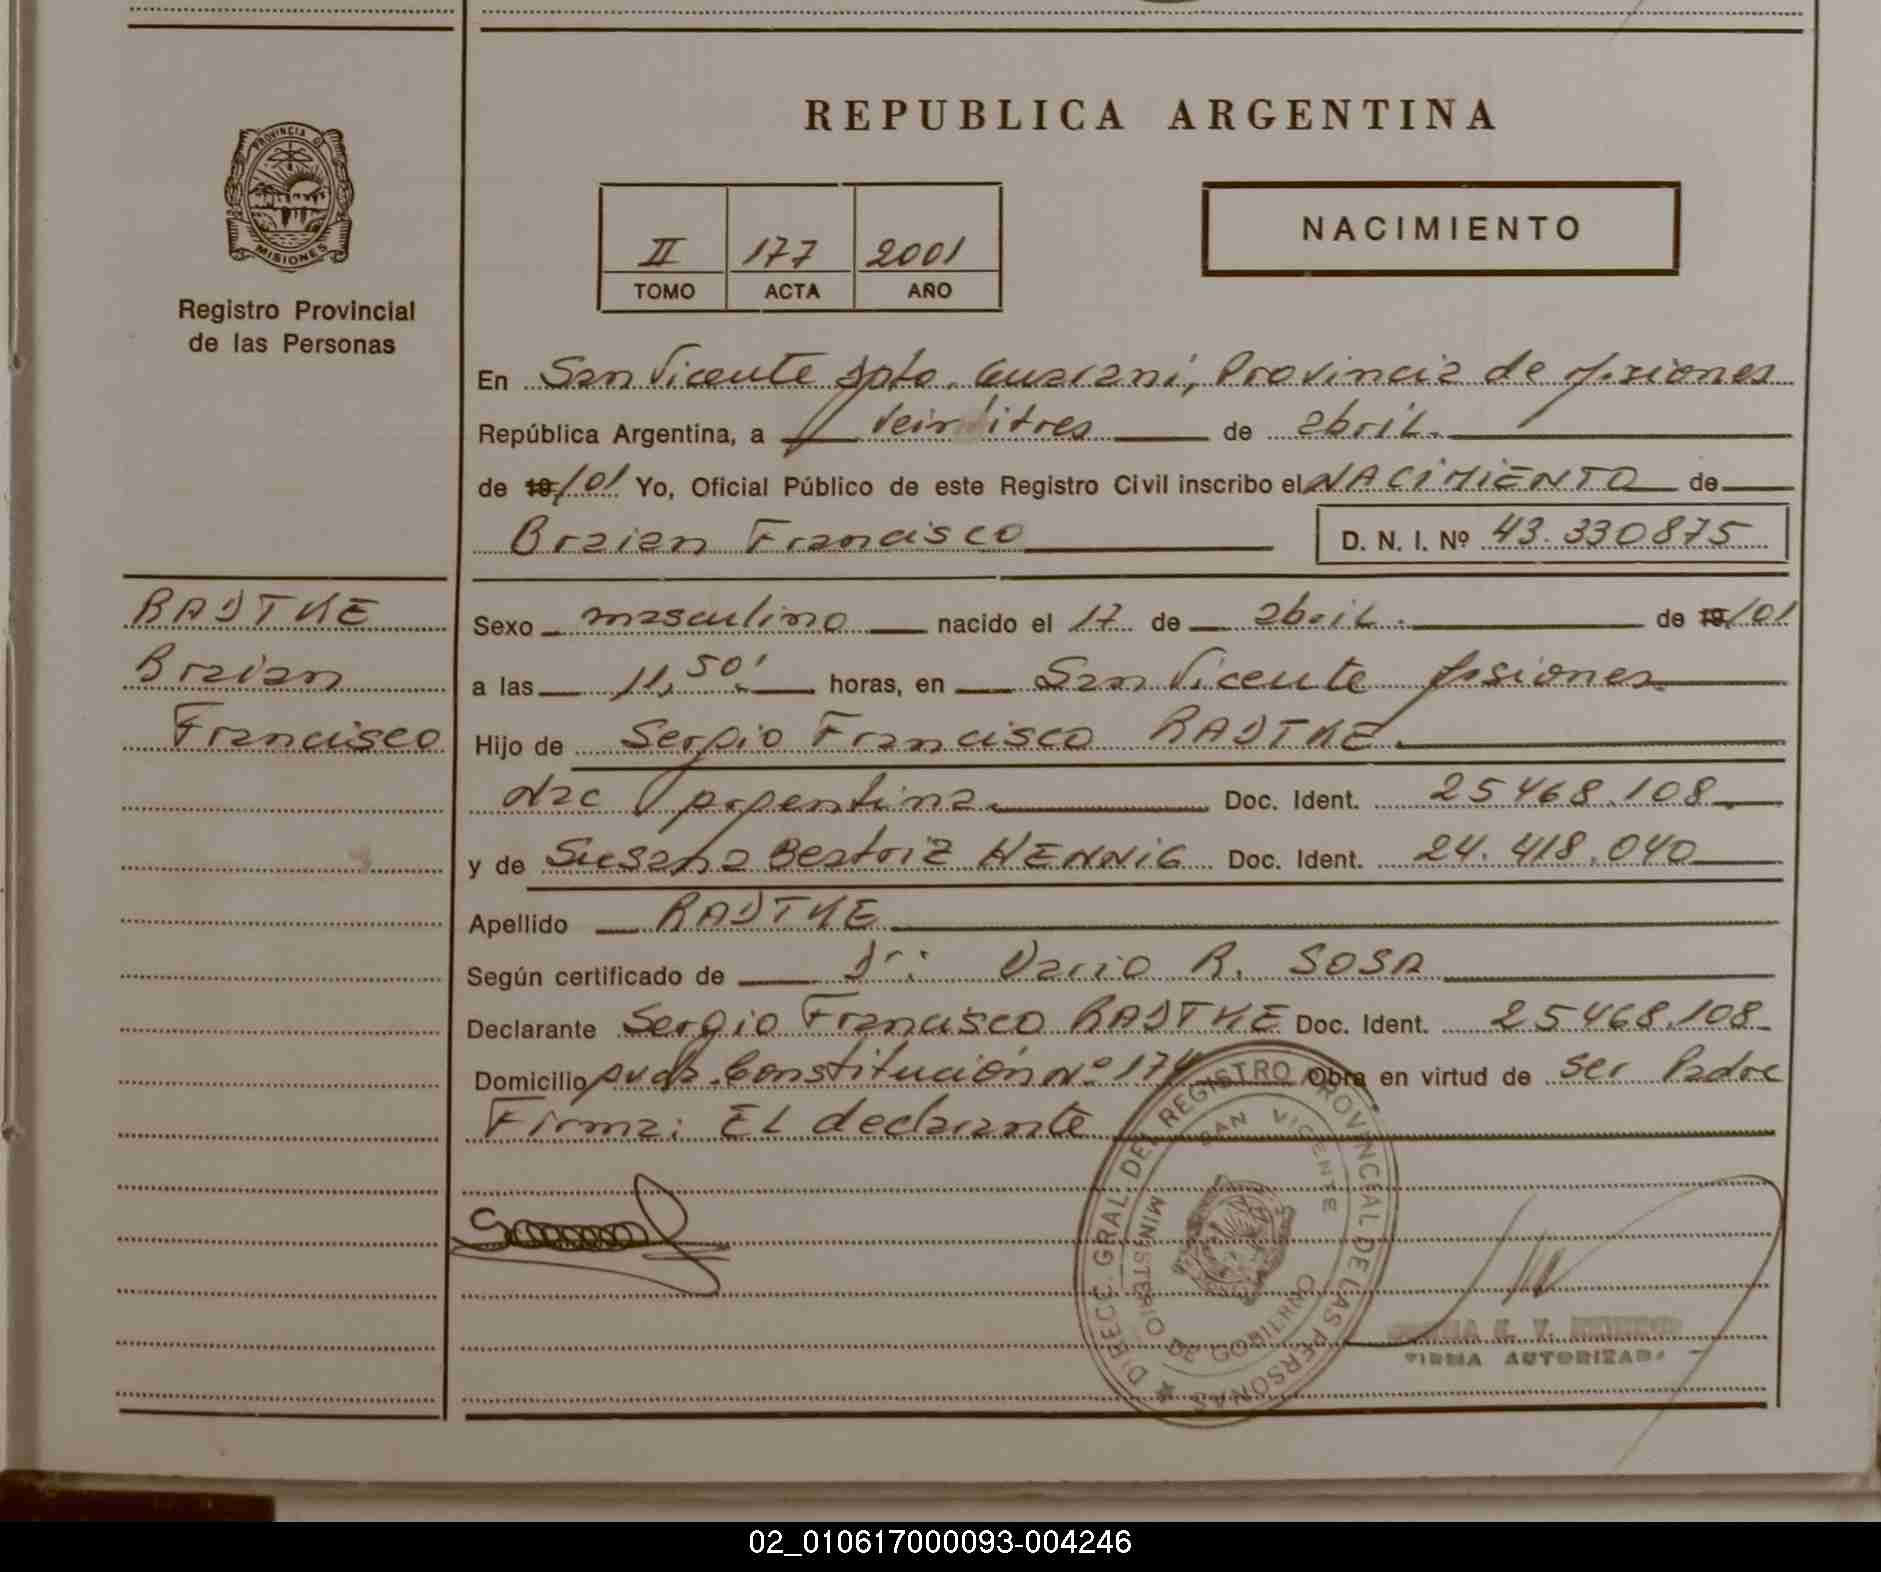 REPUBLICA ARGENTINA
PROVINCIA DE
MISIONES
Registro Provincial
de las Personas
II 177 2001
TOMO ACTA AÑO
NACIMIENTO
En San Vicente Dpto. Guarani, Provincia de Misiones
República Argentina, a veintitres de abril.
de 19/01 Yo, Oficial Público de este Registro Civil inscribo el NACIMIENTO de
Braian Francisco D. N. I. Nº 43.330875
RADTKE
Braian
Francisco
Sexo masculino nacido el 17 de abril. de 19/01
a las 11,50' horas, en San Vicente Misiones
Hijo de Sergio Francisco RADTKE
Nac Argentina Doc. Ident. 25468.108
y de Susana Beatriz HENNIG Doc. Ident. 24.418.040
Apellido RADTKE
Según certificado de Dr: Dario R. SOSA
Declarante Sergio Francisco RADTKE Doc. Ident. 25468.108
Domicilio Avda. Constitución Nº 174 Obra en virtud de ser Padre
Firma: EL declarante
DIRECC. GRAL. DEL REGISTRO PROVINCIAL DE LAS PERSONAS
SAN VICENTE
MINISTERIO DE GOBIERNO
FIRMA AUTORIZADA
02_010617000093-004246